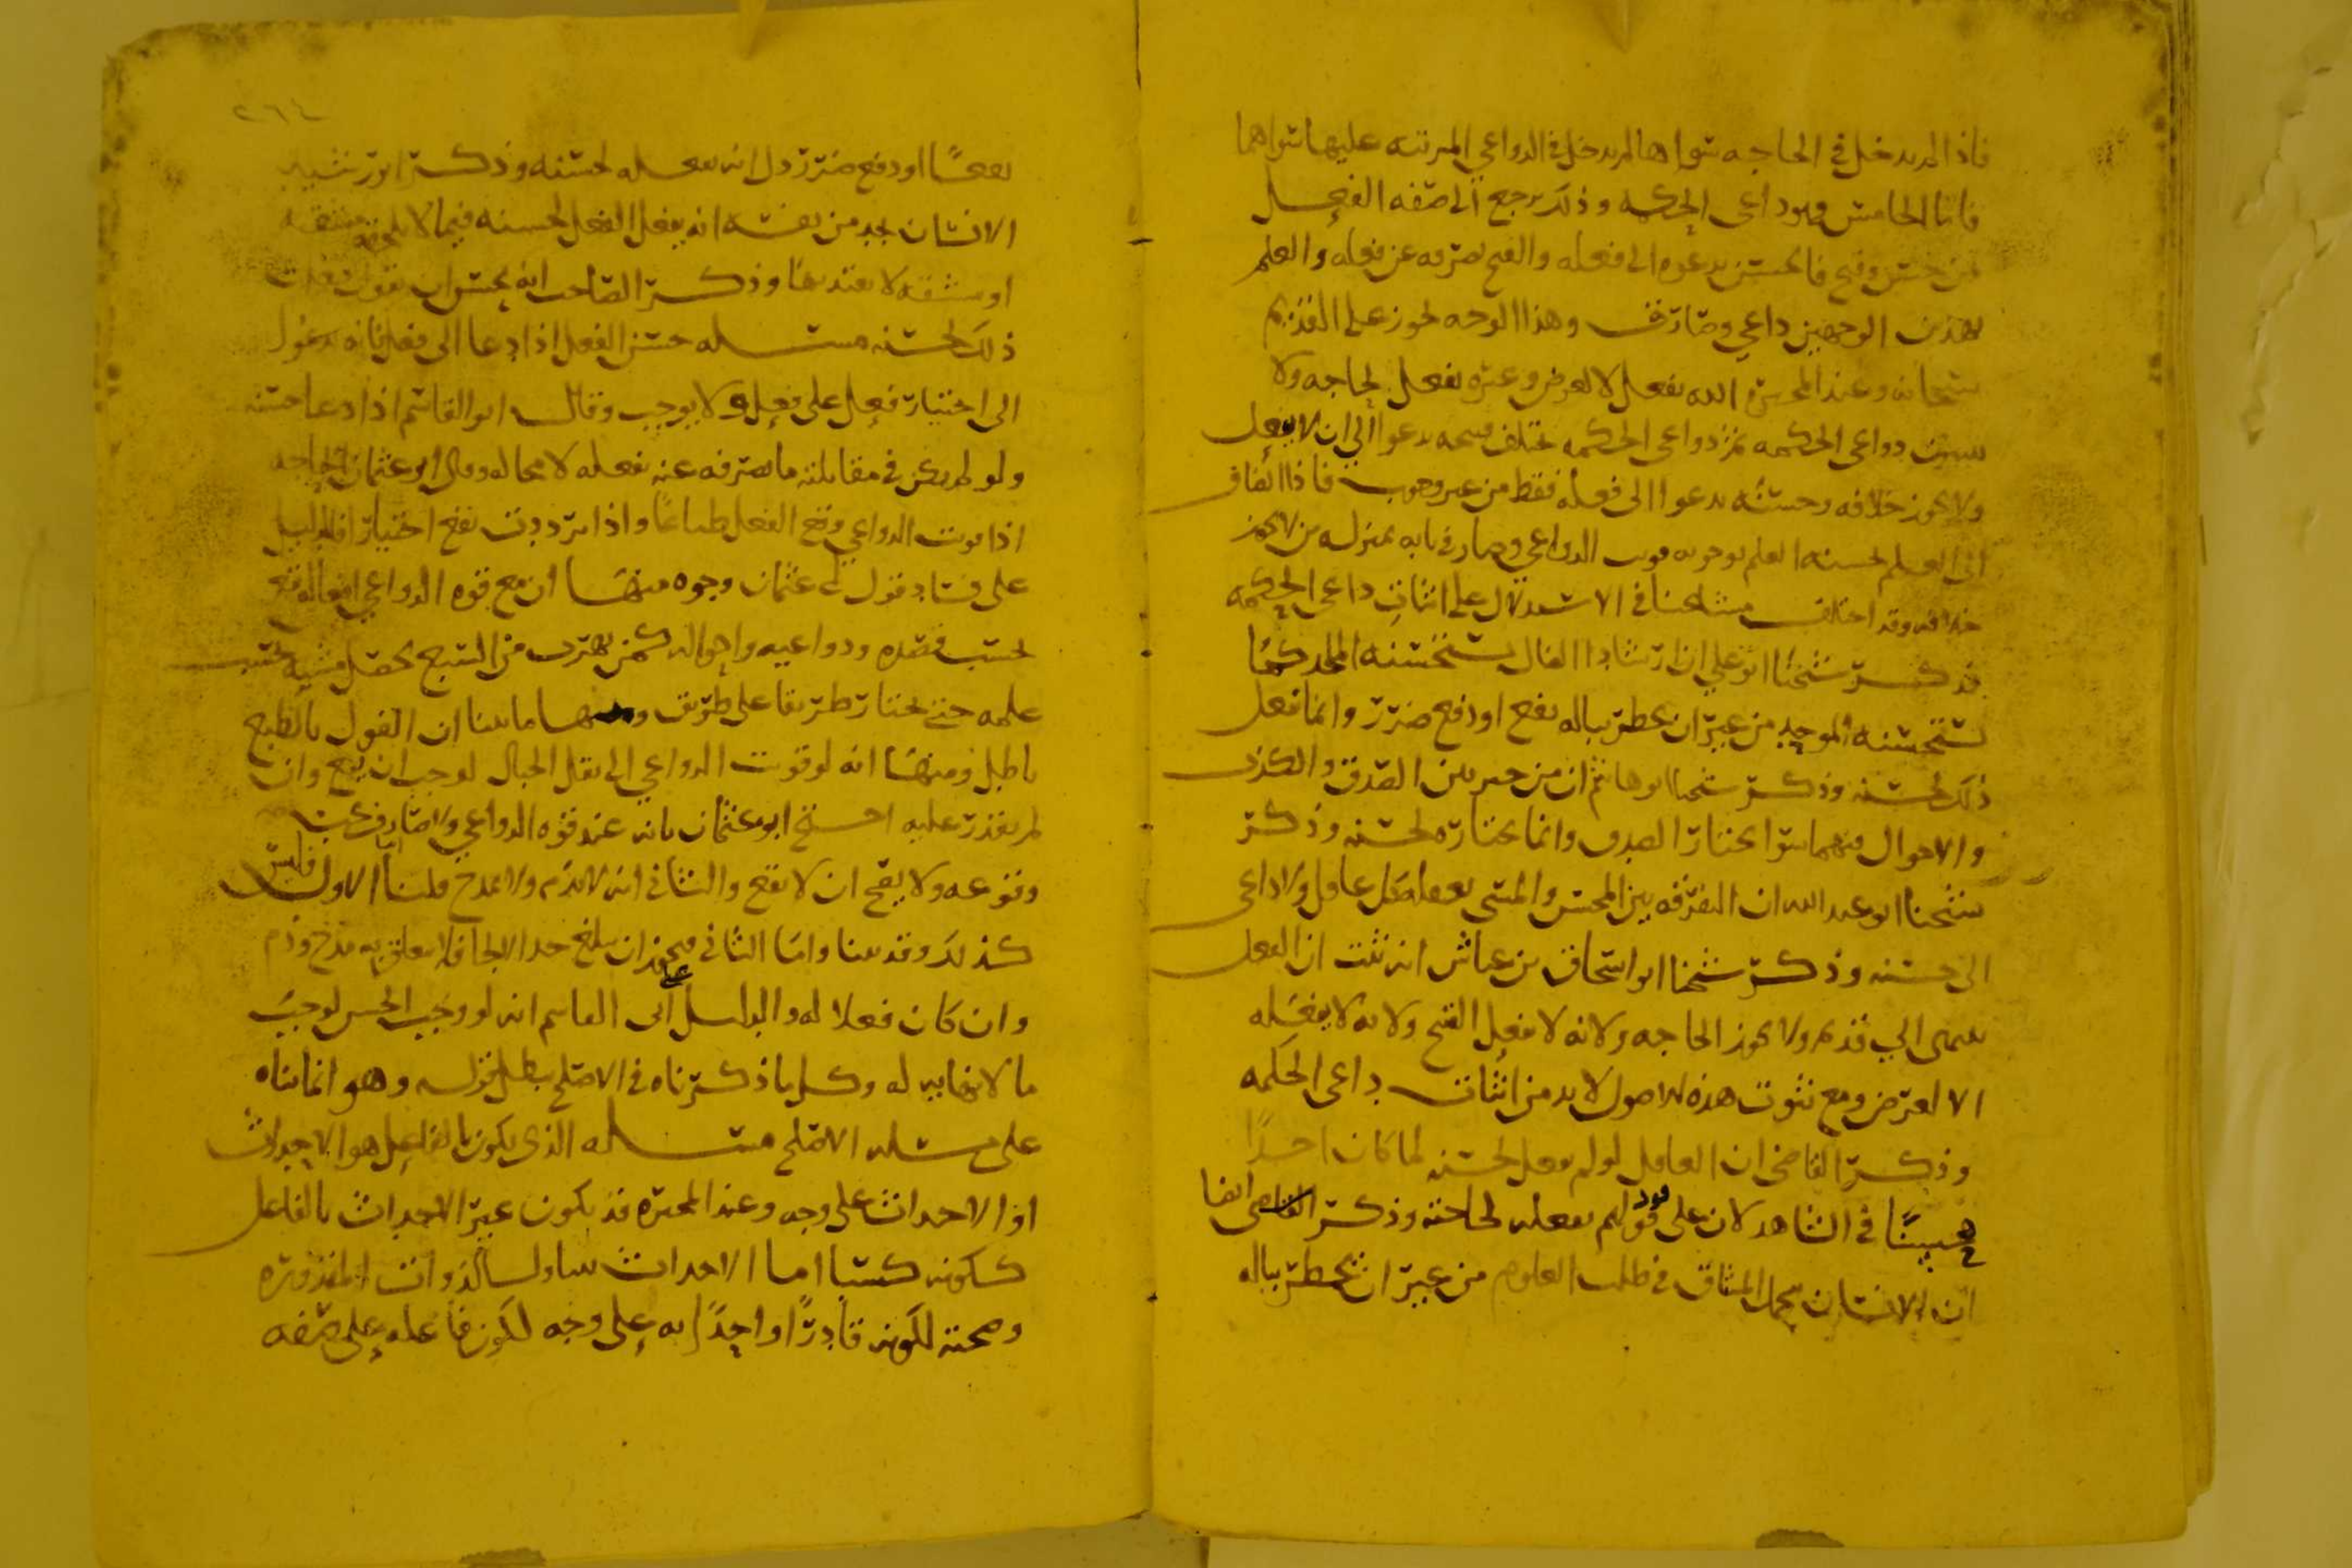 فاذا لم يدخل في الحاجه سواها لم يدخل في الدواعي المرتبه عليها سواها
فاما الخامس وهو داعي الحكمه وذلك يرجع الى صفه الفعل
من حسن وقبح فالحسن يدعوه الى فعله والقبح يصرفه عن فعله والعلم
بهذين الوجهين داعي وصارف وهذا الوجه يجوز على القديم
سبحانه وعند المجبره الله يفعل لا لغرض وغيره يفعل لحاجه ولا
دواعي الحكمه ثم دواعي الحكمه تختلف قبحه يدعوا الى ان لا يفعل
ولا يجوز خلافه وحسنه يدعوا الى فعله فقط من غير وجوب فاذا انضاف
الى العلم بحسنه العلم بوجوبه قويت الدواعي وصار في بابه بمنزله من لا يجوز
خلافه وقد اختلف مشايخنا في الاستدلال على اثبات داعي الحكمه
فذكر شيخنا ابو علي ان ارشاد الضال يستحسنه الملحد كما
يستحسنه الموحد من غير ان يخطر بباله نفع او دفع ضرر وانما فعل
ذلك لحسنه وذكر شيخنا ابو هاشم ان من خير بين الصدق والكذب
والاحوال فيهما سوا يختار الصدق وانما يختاره لحسنه وذكر
شيخنا ابو عبد الله ان التفرقه بين المحسن والمسي يعقلها كل عاقل ولا داعي
الى حسنه وذكر شيخنا ابو اسحاق بن عياش انه ثبت ان الفعل
ينتهي الى قديم ولا يجوز الحاجه ولانه لا يفعل القبح ولانه لا يفعله
الا لغرض ومع ثبوت هذه الاصول لا بد من اثبات داعي الحكمه
وذكر القاضي ان العاقل لو لم يفعل لحسنه لما كان احدا
محسنا في الشاهد لان على قولهم يفعله لحاجته وذكر القاضي ايضا
ان الانسان يتحمل المشاق في طلب العلوم من غير ان يخطر بباله
٢٦٤
نفعا او دفع ضرر دل انه يفعله لحسنه وذكر ابو رشيد
الانسان يجد من نفسه انه يفعل الفعل لحسنه فيما لا يلحقه مشقه
او مشقه لا يعتد بها وذكر الصاحب انه يحسن ان يقول فعلت
ذلك لحسنه مسئله حسن الفعل اذا دعا الى فعل فانه يدعوا
الى اختيار فعل على فعل ولا يوجب وقال ابو القاسم اذا دعا حسنه
ولو لم يكن في مقابلته ما يصرفه عنه يفعله لا محاله وقال ابو عثمان الجاحظ
اذا قويت الدواعي وقع الفعل طباعا واذا ترددت يقع اختيارا فالدليل
على فساد قول ابي عثمان وجوه منها ان مع قوه الدواعي افعاله تقع
بحسب قصده ودواعيه واحواله كمن يهرب من السبع يحصل مشيه بحسب
علمه حتى يختار طريقا على طريق ومنها ما بينا ان القول بالطبع
باطل ومنها انه لو قويت الدواعي الى نقل الجبال لوجب ان يقع وان
لم يقدر عليه احتج ابو عثمان بانه عند قوه الدواعي ولا صارف يجب
وقوعه ولا يصح ان لا يقع والثاني انه لا يذم ولا يمدح قلنا اما الاول فليس
كذلك وقد بينا واما الثاني فيجوز ان يبلغ حد الالجا فلا يتعلق به مدح وذم
وان كان فعلا له والدليل على ابي القاسم انه لو وجب الحسن لوجب
ما لا نهايه له وكل ما ذكرناه في الاصلح يبطل قوله وهو انما بناه
على مسئله الاصلح مسئله الذي يكون بالفاعل هو الاحداث
او الاحداث على وجه وعند المجبره قد يكون غير الاحداث بالفاعل
ككونه كسبا اما الاحداث الذوات المقدوره
وصحته لكونه قادرا واحداثه على وجه لكون فاعله على صفه